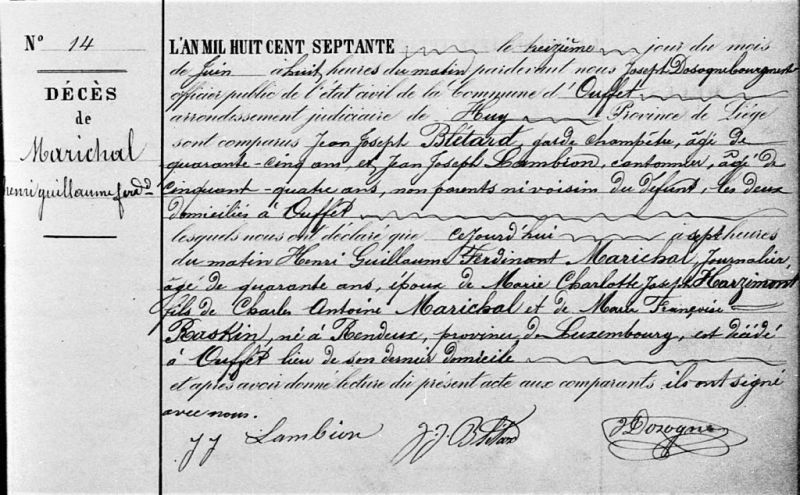 N° 14
DÉCÈS
de
Marichal
henri guillaume ferd.d
L'AN MIL HUIT CENT SEPTANTE le treizième jour du mois
de Juin à huit heures du matin pardevant nous Joseph Dosogne bourgmestre
officier public de l'état civil de la Commune d'Ouffet
arrondissement judiciaire de Huy Province de Liége
sont comparus Jean Joseph Blétard, garde champêtre, âgé de
quarante-cinq ans, et Jean Joseph Lambion, cantonnier, âgé de
cinquant-quatre ans, non parents ni voisin du défunt, les deux
domiciliés à Ouffet
lesquels nous ont déclaré que cejourd'hui à sept heures
du matin Henri Guillaume Ferdinant Marichal, Journalier,
âgé de quarante ans, époux de Marie Charlotte Joseph Harzimont
fils de Charles Antoine Marichal et de Marie Françoise
Raskin, né à Rendeux, province de Luxembourg, est décédé
à Ouffet lieu de son dernier domicile
et après avoir donné lecture du présent acte aux comparants ils ont signé
avec nous.
J J Lambion J. J. Blétard J Dosogne